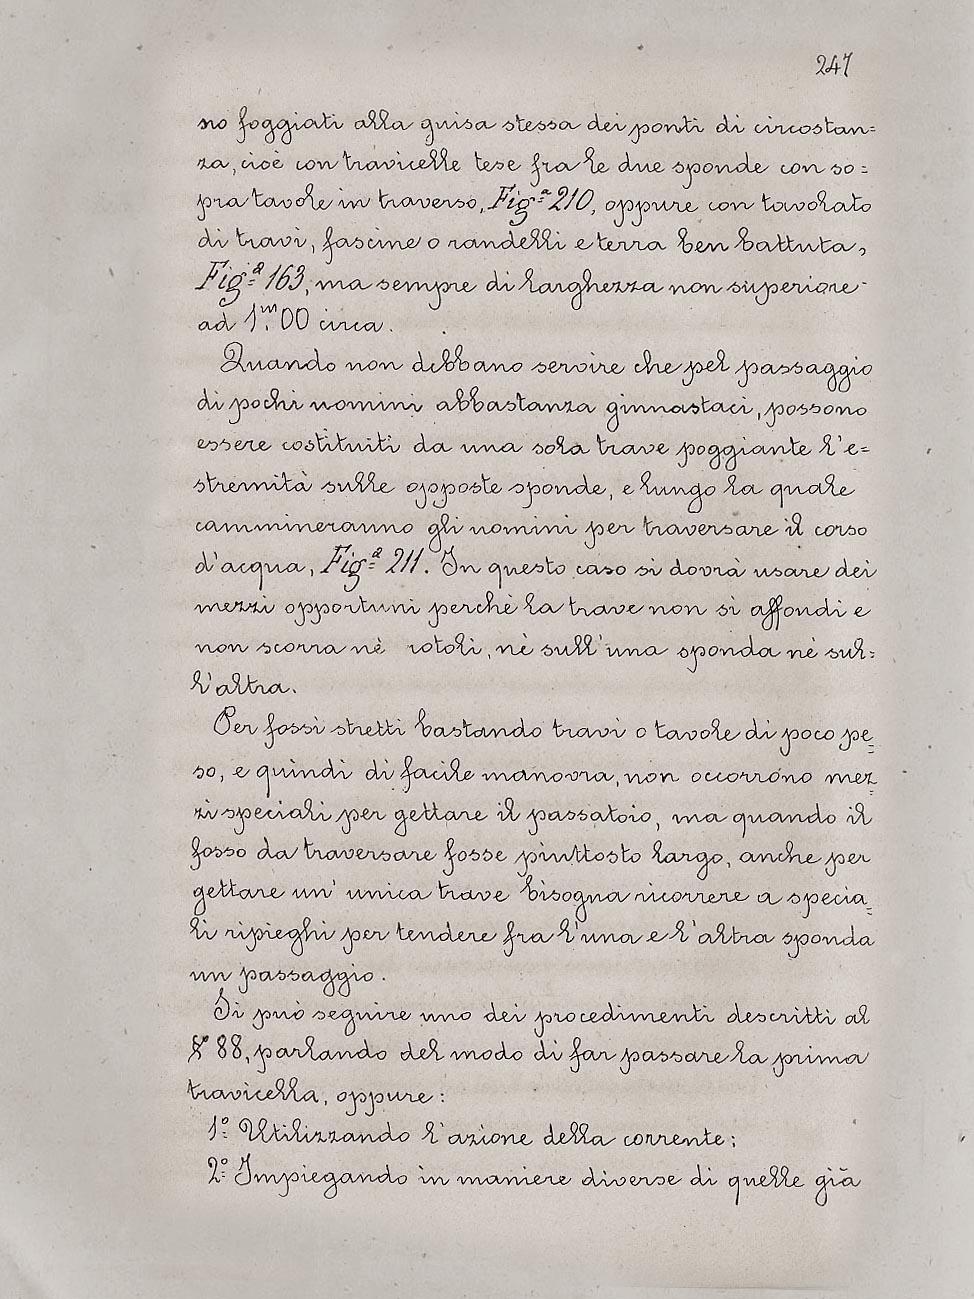 247
no foggiati alla guisa stessa dei ponti di circostan=
za, cioè con travicelle tese fra le due sponde con so=
pra tavole in traverso, Fig.ª 210, oppure con tavolato
di travi, fascine o randelli e terra ben battuta,
Fig.ª 163, ma sempre di larghezza non superiore
ad 1.ᵐ00 circa.
Quando non debbano servire che pel passaggio
di pochi uomini abbastanza ginnastaci, possono
essere costituiti da una sola trave poggiante l'e=
stremità sulle opposte sponde, e lungo la quale
cammineranno gli uomini per traversare il corso
d'acqua, Fig.ª 211. In questo caso si dovrà usare dei
mezzi opportuni perchè la trave non si affondi e
non scorra nè rotoli, nè sull'una sponda nè sul=
l'altra.
Per fossi stretti bastando travi o tavole di poco pe=
so, e quindi di facile manovra, non occorrono mez=
zi speciali per gettare il passatoio, ma quando il
fosso da traversare fosse piuttosto largo, anche per
gettare un' unica trave bisogna ricorrere a specia=
li ripieghi per tendere fra l'una e l'altra sponda
un passaggio.
Si può seguire uno dei procedimenti descritti al
§° 88, parlando del modo di far passare la prima
travicella, oppure:
1.° Utilizzando l'azione della corrente;
2.° Impiegando in maniere diverse di quelle già